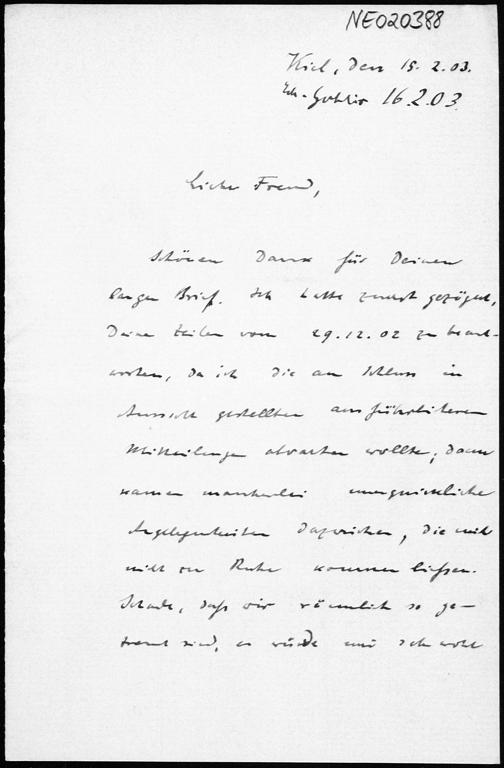 NE020388
Kiel, den 15.2.03.
16.2.03.
Lieber Freund,
Schönen Dank für Deinen
langen Brief. Ich hatte zuerst gezögert,
Deine Zeilen vom 29.12.02 zu beant-
worten, da ich die am Schluss in
Aussicht gestellten ausführlicheren
Mitteilungen abwarten wollte; dann
kamen mancherlei unerquickliche
Angelegenheiten dazwischen, die mich
nicht zur Ruhe kommen liessen.
Schade, dass wir räumlich so ge-
trennt sind, es würde mir sehr wohl